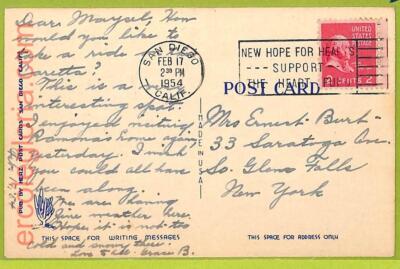 Dear Margel, How
would you like to
take a ride on a
Caretta?
This is a most
interesting spot.
I enjoyed visiting
Ramona's home here
yesterday. I wish
you could all have
been along.
We are having
fine weather here.
Hope it is not too
cold and snowy there.
Love to all. Grace B.
THIS SPACE FOR WRITING MESSAGES
PUB. BY POST CARDS, SAN DIEGO, CALIF.
MADE IN USA
SAN DIEGO
FEB 17
2 PM
1954
CALIF.
NEW HOPE FOR HEARTS
SUPPORT
THE HEART FUND
UNITED STATES
POSTAGE
2 CENTS 2
POST CARD
Mrs Ernest Burt-
33 Saratoga Ave
So. Glens Falls
New York
THIS SPACE FOR ADDRESS ONLY